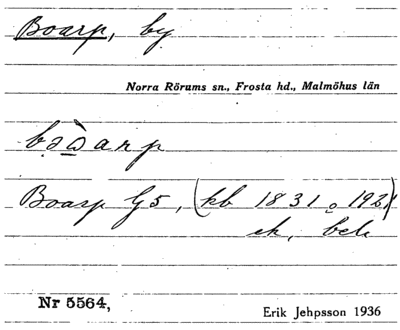 Boarp, by
Norra Rörums sn., Frosta hd., Malmöhus län
Boarp G5, (kb 1831 o 1921)
ek, beb
Nr 5564,
Erik Jehpsson 1936